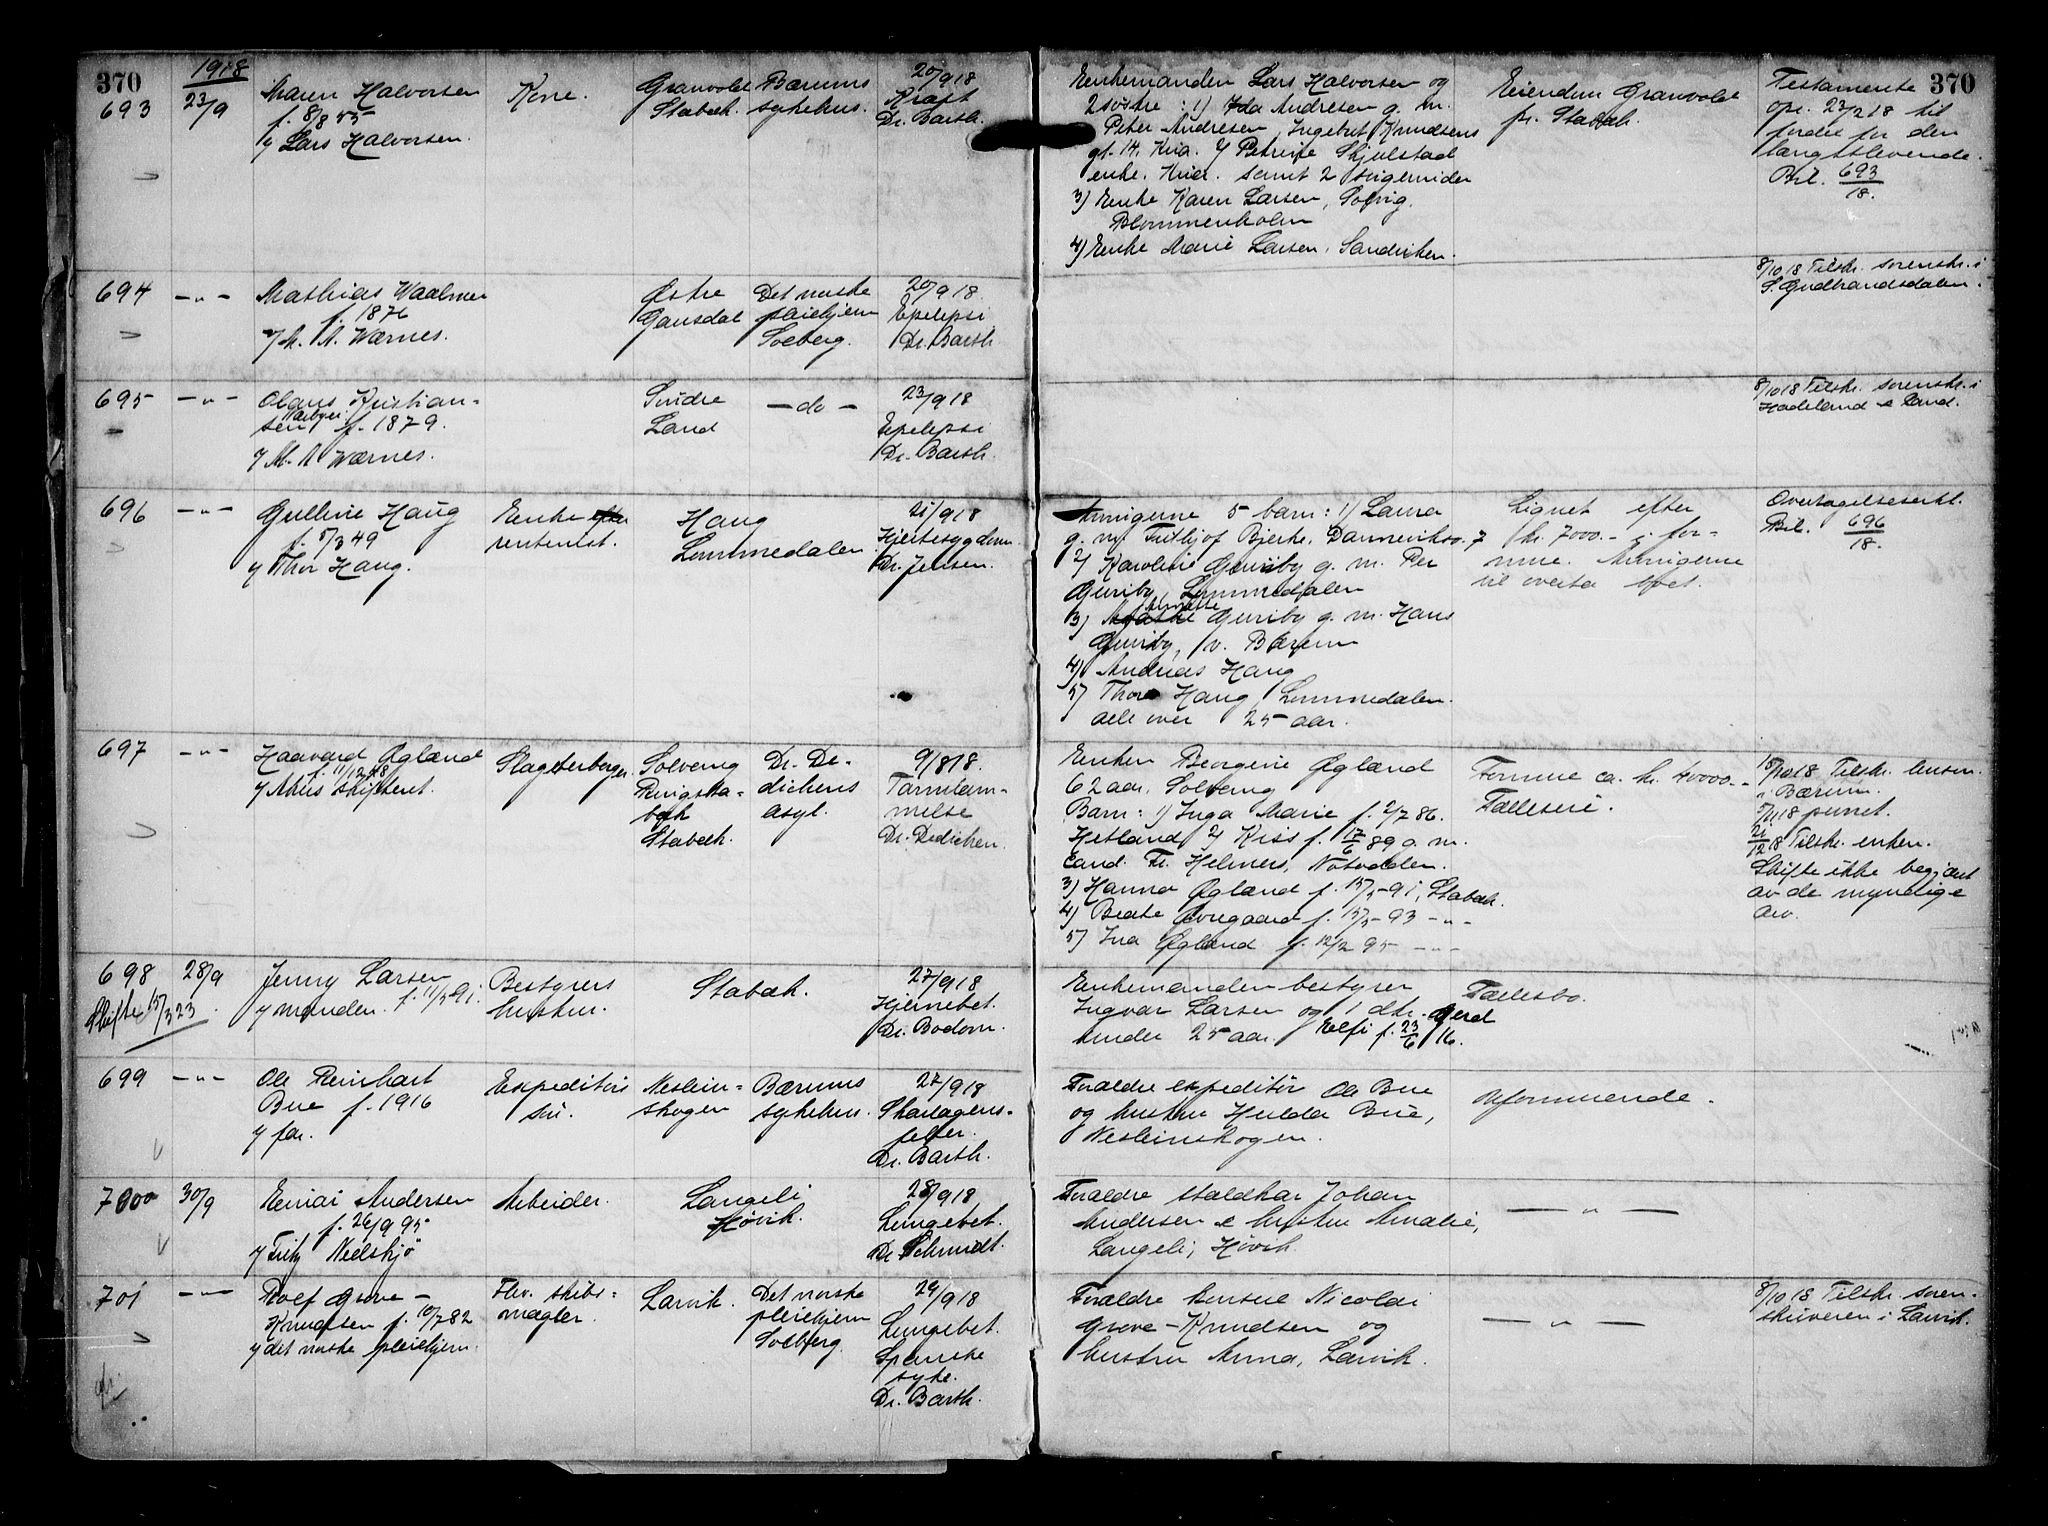 370
1918
693
23/9
Maren Halvorsen
f. 8/8 55
v/ Lars Halvorsen.
Kone.
Granvold
Stabæk.
Bærums
sykehus.
20/9 18
Kræft
Dr. Barth.
Enkemanden Lars Halvorsen og
2 søstre : 1) Ida Andresen g. m.
Peter Andresen, Ingebret Knudsens
gt. 14, Kria. 2/ Petrine Skjulstad
enke. Kria. samt 2 stigenider
3) Enke Karen Larsen, Solvig,
Blommenholm
4) Enke Marie Larsen, Sandviken.
Eiendom Granvold
pr. Stabæk.
Testamente
opr. 23/2 18 til
fordel for den
længstlevende.
Bil. 693/18.
370
694
— " —
Mathias Waalmer
f. 1876
v/ M. A. Wærnes.
Østre
Gausdal
Det norske
pleiehjem
Solberg.
20/9 18
Epilepsi
Dr. Barth
8/10 18 Tilskr. sorenskr. i
S. Gudbrandsdalen.
695
— " —
Olaus Kristian-
sen f. 1879.
v/ M. A Wærnes.
Søndre
Land
— do —
23/9 18
Epilepsi
Dr. Barth.
8/10 18 Tilskr. sorenskr. i
Hadeland & Land.
696
— " —
Gulline Haug
f. 5/3 49
v/ Thor Haug.
Enke efter
rentenist.
Haug
Lommedalen
21/9 18
Hjertesygdom
Dr. Jensen.
Arvingerne 5 barn: 1) Laura
g. m. Fritjof Bjerke, Dannevikso. 7
2/ Karoline Gurihy g. m. Per
Gurihy, Lommedalen
3) Gurihy g. m. Hans
Gurihy, v. Bærum
4) Andreas Haug
5) Thora Haug, Lommedalen.
alle over 25 aar.
Lignet efter
kr. 7000.- i for-
mue. Arvingerne
vil overta boet.
Overtagelseserkl.
Bil. 696/18.
697
— " —
Haavard Øgland
f. 11/12 48
v/ Akers skifteret.
Slagterborger.
Solveng
Ringsta-
bæk
Stabæk.
Dr. De-
dichens
asyl.
9/8 18.
Tarmlam-
melse
Dr. Dedichen.
Enken Bergine Øgland
62 aar, Solveng
Barn: 1) Inga Marie f. 2/7 86.
Hetland 2) Kiss f. 17/6 89 g. m.
Cand. Fr. Helmers, Notodden.
3) Hanna Øgland f. 15/5 - 91, Stabæk.
4) Beate Øvregaard f. 15/5 - 93 — " —
5) Ina Øgland f. 12/2 95 — " —
Formue ca. kr. 40000.-
Fælleseie.
15/10 18 Tilskr. lensm.
i Bærum.
5/11 18 purret.
21/12 18 Tilskr. enken.
Skifte ikke begjært
av de myndige
arv.
698
28/9
Skifte 15/3 23
Jenny Larsen
v/ manden. f. 11/5 - 91.
Bestyrers
hustru.
Stabæk.
27/9 18
Hjernebet.
Dr. Bodom.
Enkemanden bestyrer
Ingvar Larsen og 1 dtr. Gerd
under 25 aar. Elfi f. 23/6 16.
Fællesbo.
699
— " —
Ole Reinhart
Bue f. 1916
v/ far.
Expeditørs
søn.
Neslein-
skogen
Bærums
sykehus.
27/9 18
Skarlagens-
feber.
Dr. Barth.
Foræeldre expeditør Ole Bue
og hustru Hulda Bue,
Nesleinskogen.
Uformuende.
700
30/9
Einar Andersen
f. 26/9 95
v/ Fritz Nielskjø
Arbeider.
Langeli
Høvik.
28/9 18
Lungebet.
Dr. Schmidt.
Forældre staldkar Johan
Andersen & hustru Amalie,
Langeli, Høvik
— " —
701
— " —
Rolf Grove -
Knudsen f. 10/7 82
v/ det norske pleiehjem.
Fhv. skibs-
mægler.
Larvik.
Det norske
pleiehjem
Solberg.
29/9 18
Lungebet.
Spanske
syke.
Dr. Barth.
Forældre konsul Nicolai
Grove-Knudsen og
hustru Anna, Larvik.
— " —
8/10 18 Tilskr. soren-
skriveren i Larvik.